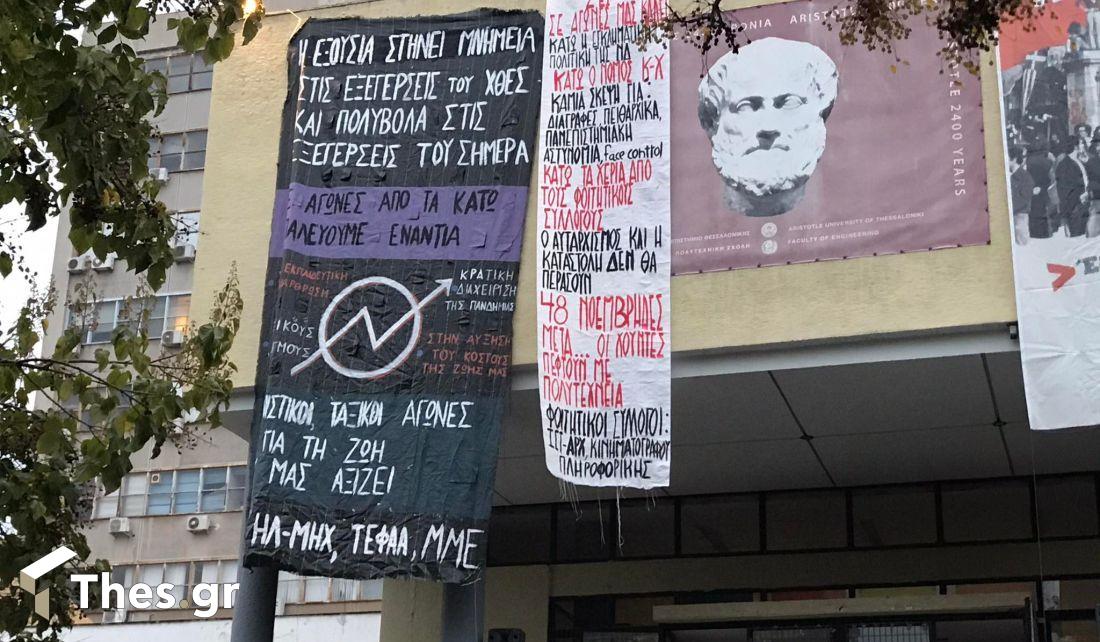 Η ΕΞΟΥΣΙΑ ΣΤΗΝΕΙ ΜΝΗΜΕΙΑ
ΣΤΙΣ ΕΞΕΓΕΡΣΕΙΣ του ΧΘΕΣ
ΚΑΙ ΠΟΛΥΒΟΛΑ ΣΤΙΣ
ΕΞΕΓΕΡΣΕΙΣ ΤΟΥ ΣΗΜΕΡΑ
ΑΓΩΝΕΣ ΑΠΟ ΤΑ ΚΑΤΩ
ΑΛΕΥΟΥΜΕ ΕΝΑΝΤΙΑ
ΕΚΠΑΙΔΕΥΤΙΚΗ
ΑΡΘΡΩΣΗ
ΚΡΑΤΙΚΗ
ΔΙΑΧΕΙΡΙΣΗ
ΤΗΣ ΠΑΝΔΗΜΙΑΣ
ΙΚΟΥΣ
ΓΜΟΥΣ
ΣΤΗΝ ΑΥΞΗΣΗ
ΤΟΥ ΚΟΣΤΟΥΣ
ΤΗΣ ΖΩΗΣ ΜΑΣ
ΙΣΤΙΚΟΙ, ΤΑΞΙΚΟΙ ΑΓΩΝΕΣ
ΓΙΑ ΤΗ ΖΩΗ
ΜΑΣ ΑΞΙΖΕΙ
ΗΛ-ΜΗΧ, ΤΕΦΑΑ, ΜΜΕ
ΣΕ ΑΓΩΝΕΣ ΜΑΣ
ΚΑΤΩ Η
ΠΟΛΙΤΙΚΗ ΤΗΣ ΝΔ
ΚΑΤΩ Ο ΝΟΜΟΣ Κ-Χ
ΚΑΜΙΑ ΣΚΕΨΗ ΓΙΑ:
ΔΙΑΓΡΑΦΕΣ, ΠΕΙΘΑΡΧΙΚΑ,
ΠΑΝΕΠΙΣΤΗΜΙΑΚΗ
ΑΣΤΥΝΟΜΙΑ, face control
ΚΑΤΩ ΤΑ ΧΕΡΙΑ ΑΠΟ
ΤΟΥΣ ΦΟΙΤΗΤΙΚΟΥΣ
ΣΥΛΛΟΓΟΥΣ
Ο ΑΥΤΑΡΧΙΣΜΟΣ ΚΑΙ Η
ΚΑΤΑΣΤΟΛΗ ΔΕΝ ΘΑ
ΠΕΡΑΣΟΥΝ
48 ΝΟΕΜΒΡΗΔΕΣ
ΜΕΤΑ... ΟΙ ΧΟΥΝΤΕΣ
ΠΕΦΤΟΥΝ ΜΕ
ΠΟΛΥΤΕΧΝΕΙΑ
ΦΟΙΤΗΤΙΚΟΙ ΣΥΛΛΟΓΟΙ:
ΚΙΝΗΜΑΤΟΓΡΑΦΟΥ
ΠΛΗΡΟΦΟΡΙΚΗΣ
ΡΟΝΙΑ ARISTOTLE
ARISTOTLE 2400 YEARS
ΕΠΙΣΤΗΜΙΟ ΘΕΣΣΑΛΟΝΙΚΗΣ
ΠΟΛΥΤΕΧΝΙΚΗ ΣΧΟΛΗ
ARISTOTLE UNIVERSITY OF THESSALONIKI
FACULTY OF ENGINEERING
Thes.gr